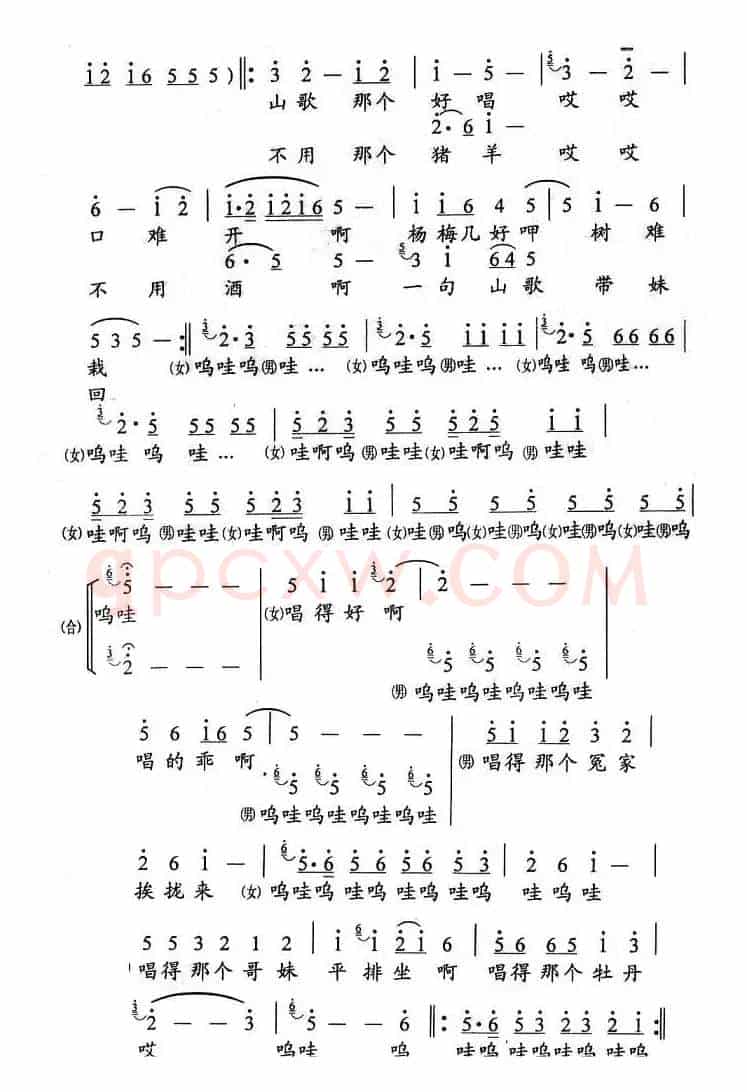 i2 i6 5 5 5 ) ‖: 3 2 – i 2 | i – 5 – | 3 – 2 – |
山歌 那个 好唱 哎 哎
2· 6 i –
不用 那个 猪羊 哎 哎
6 – i 2 | i·2 i2i6 5 – | i i 6 4 5 | 5 i – 6
口 难 开 啊 杨梅几好呷 树 难
6· 5 5 – 3 i 64 5
不 用 酒 啊 一 句 山 歌 带 妹
5 3 5 – :‖ 2·3 5 5 5 5 | 2·5 i i i i | 2·5 66 66 |
栽 (女)呜哇呜(男)哇… (女)呜哇呜(男)哇… (女)呜哇 呜(男)哇…
回
2·5 55 55 | 5 2 3 5 5 5 2 5 i i |
(女)呜哇 呜 哇… (女)哇啊呜(男)哇哇(女)哇啊呜(男)哇哇
5 2 3 5 5 5 2 3 i i | 5 5 5 5 5 5 5 5 |
(女)哇啊呜(男)哇哇(女)哇啊呜(男)哇哇(女)哇(男)呜(女)哇(男)呜(女)哇(男)呜(女)哇(男)呜
5 – – – 5 i i 2 | 2 – – –
(合) 呜哇 (女)唱得好 啊
2 – – – 5 5 5 5
(男)呜哇呜哇呜哇呜哇
5 6 i6 5 | 5 – – – 5i i2 3 2 |
唱的乖 啊 (男)唱得那个冤家
5 5 5 5
(男)呜哇呜哇呜哇呜哇
2 6 i – | 5·6 56 56 53 | 2 6 i – |
挨拢来 (女)呜哇呜 哇呜 哇呜 哇呜 哇呜哇
5 5 3 2 1 2 | i i 2i 6 | 56 65 i 3
唱得那个哥妹 平排坐 啊 唱得那个牡丹
2 – – 3 | 5 – – 6 ‖: 5·6 53 23 2i :‖
哎 呜哇 呜 哇呜 哇呜哇呜 哇呜
qpcxw.COM